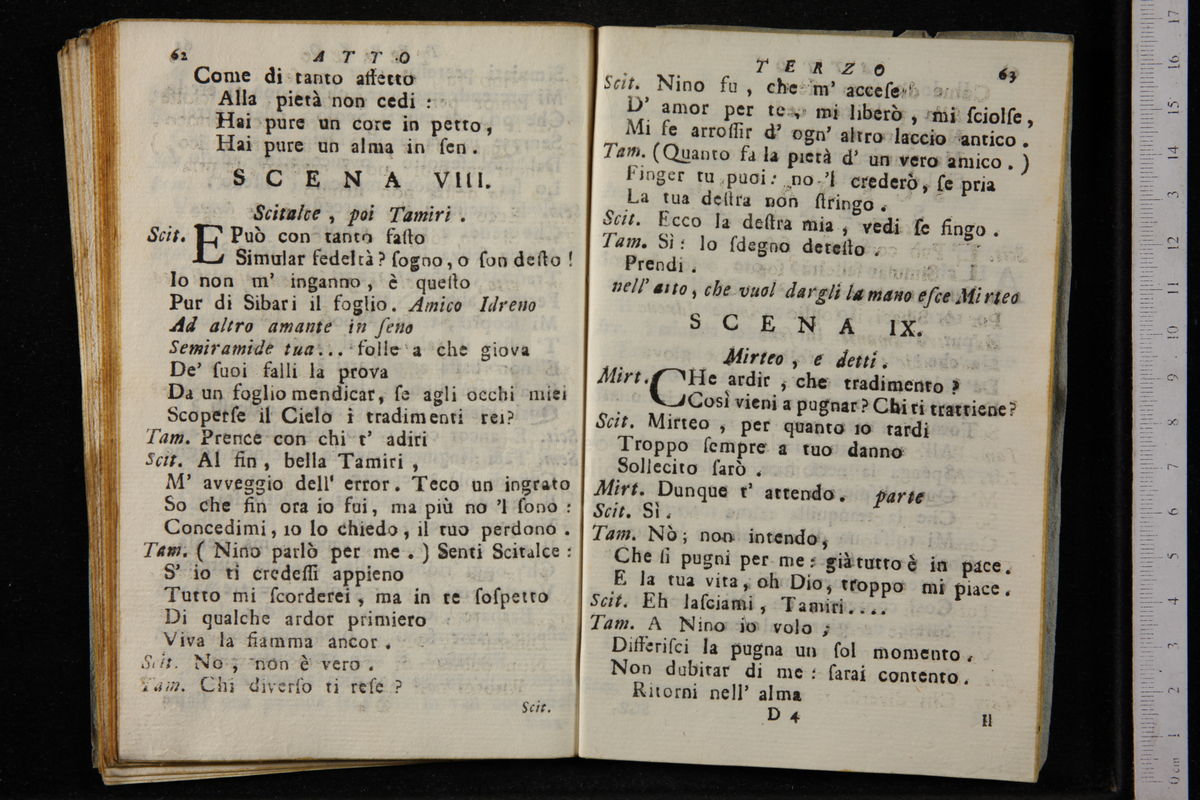 62 ATTO
Come di tanto affetto
Alla pietà non cedi :
Hai pure un core in petto,
Hai pure un alma in sen.
SCENA VIII.
Scitalce, poi Tamiri.
Scit. E Può con tanto faſto
Simular fedeltà? ſogno, o ſon deſto!
Io non m' inganno, è queſto
Pur di Sibari il foglio. Amico Idreno
Ad altro amante in ſeno
Semiramide tua... folle a che giova
De' ſuoi falli la prova
Da un foglio mendicar, ſe agli occhi miei
Scoperſe il Cielo i tradimenti rei?
Tam. Prence con chi t' adiri
Scit. Al fin, bella Tamiri,
M' avveggio dell' error. Teco un ingrato
So che fin ora io fui, ma più no 'l ſono :
Concedimi, io lo chiedo, il tuo perdono.
Tam. ( Nino parlò per me. ) Senti Scitalce :
S' io ti credeſſi appieno
Tutto mi ſcorderei, ma in te ſoſpetto
Di qualche ardor primiero
Viva la fiamma ancor.
Scit. No, non è vero.
Tam. Chi diverſo ti reſe ?
Scit.
TERZO 63
Scit. Nino fu, che m' acceſe
D' amor per te, mi liberò, mi ſciolſe,
Mi fe arroſſir d' ogn' altro laccio antico.
Tam. (Quanto fa la pietà d' un vero amico.)
Finger tu puoi: no 'l crederò, ſe pria
La tua deſtra non ſtringo.
Scit. Ecco la deſtra mia, vedi ſe fingo.
Tam. Sì: lo ſdegno deteſto.
Prendi.
nell' atto, che vuol dargli la mano eſce Mirteo
SCENA IX.
Mirteo, e detti.
Mirt. CHe ardir, che tradimento ?
Così vieni a pugnar? Chi ti trattiene?
Scit. Mirteo, per quanto io tardi
Troppo ſempre a tuo danno
Sollecito ſarò.
Mirt. Dunque t' attendo. parte
Scit. Sì.
Tam. Nò; non intendo,
Che ſi pugni per me: già tutto è in pace.
E la tua vita, oh Dio, troppo mi piace.
Scit. Eh laſciami, Tamiri....
Tam. A Nino io volo ;
Differiſci la pugna un ſol momento.
Non dubitar di me: ſarai contento.
Ritorni nell' alma
D 4 Il